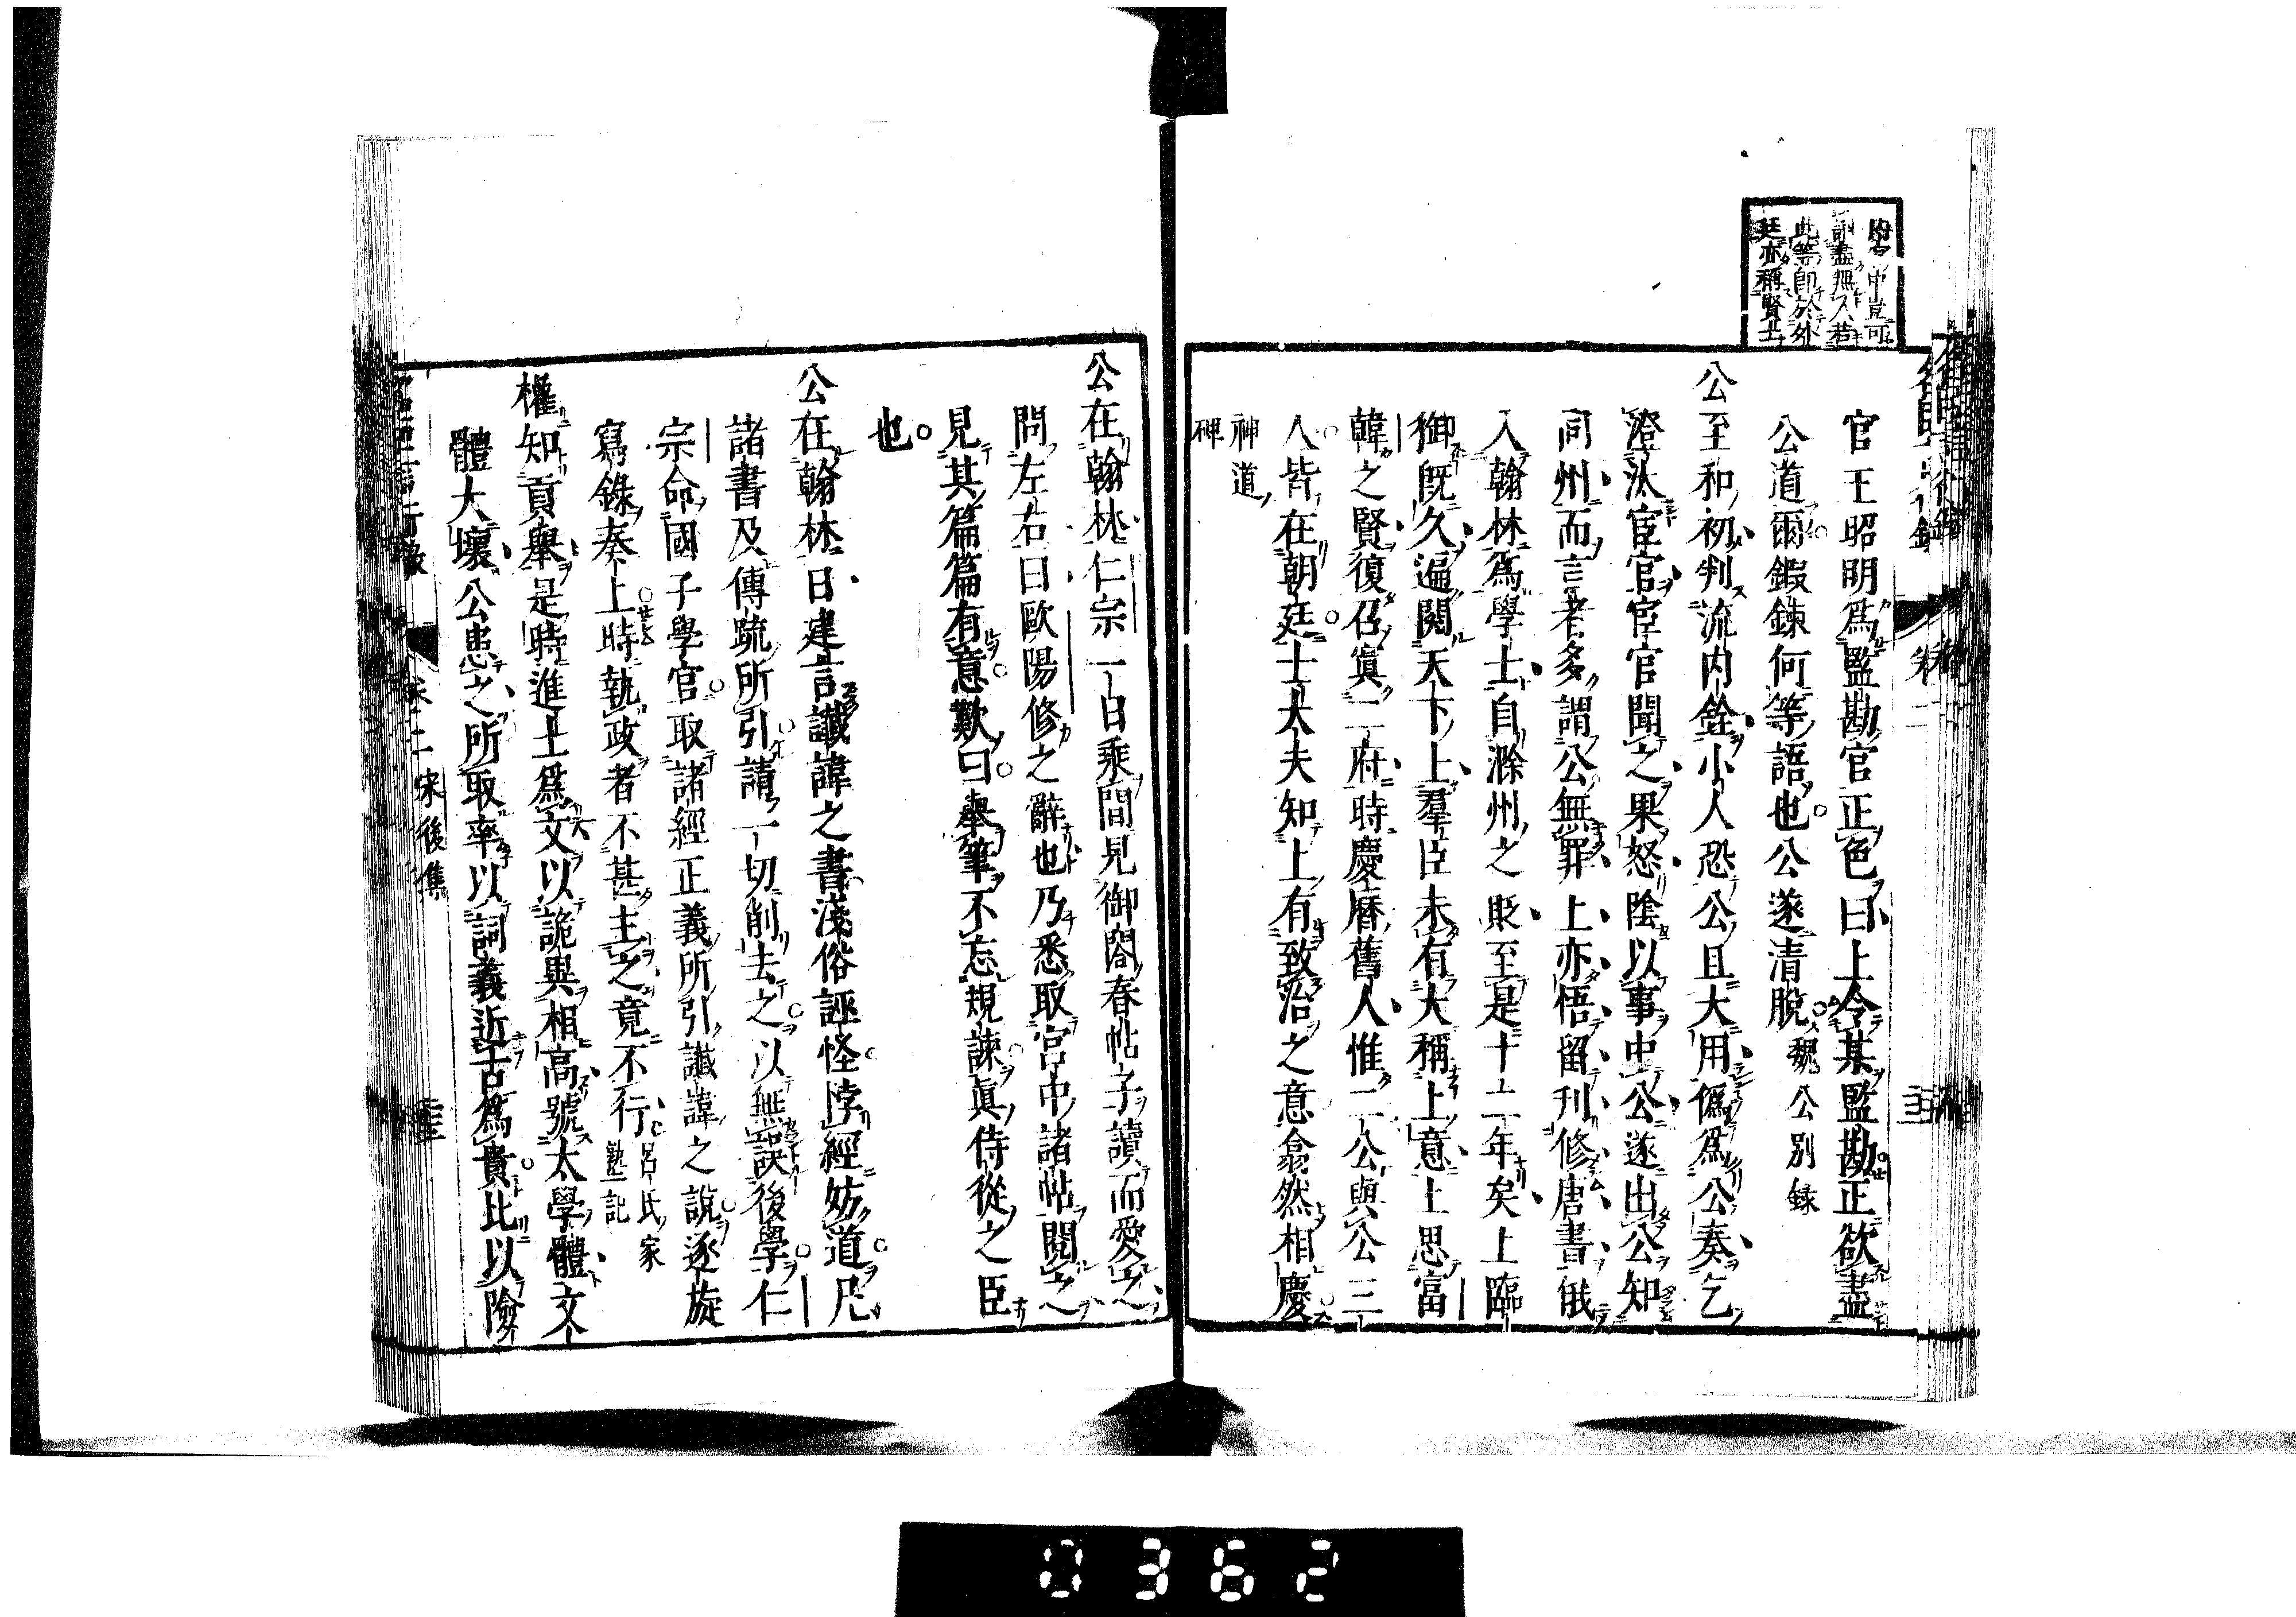 中豈可
盡無人若
此等卽於外
廷亦稱賢士
官王昭明爲監勘官正色曰上令某監勘正欲盡
公道爾鍛鍊何等語也公遂清脫魏公別録
公至和初判流内銓小人恐公且大用僞爲公奏乞
澄汰宦官宦官聞之果怒陰以事中公遂出公知
同州而言者多謂公無罪上亦悟留刋修唐書俄
入翰林爲學士自滁州之貶至是十二年矣上臨
御旣久遍閱天下上羣臣未有大稱上意上思富
韓之賢復召寘二府時慶曆舊人惟二公與公三
人皆在朝廷士大夫知上有致治之意翕然相慶
神道
碑
公在翰林仁宗一日乘間見御閤春帖子讀而愛之
問左右曰歐陽修之辭也乃悉取宮中諸帖閱之
見其篇篇有意歎曰舉筆不忘規諫眞侍從之臣
也
公在翰林日建言讖諱之書淺俗誣怪悖經妨道凡
諸書及傳疏所引請一切削去之以無誤後學仁
宗命國子學官取諸經正義所引讖諱之說逐旋
寫錄奏上時執政者不甚主之竟不行呂氏家塾記
權知貢舉是時進士爲文以詭異相高號太學體文
體大壞公患之所取率以詞義近古爲貴比以險
卷二 宋後集
0362